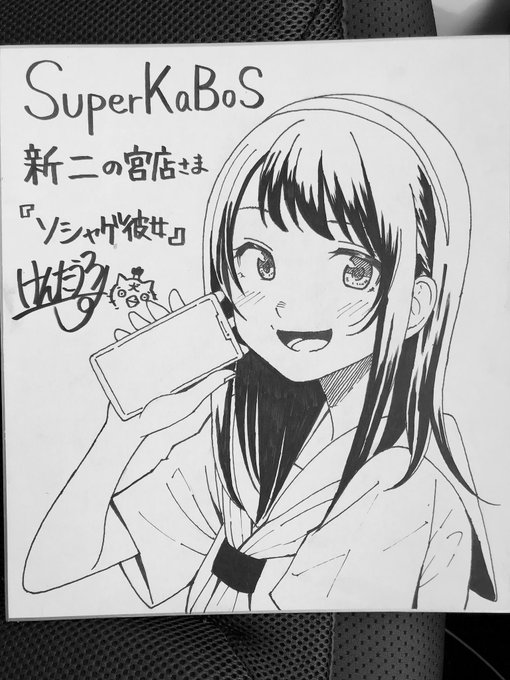 SuperKaBoS
新二の宮店さま
『ソシャゲ彼女』
けんたうろ